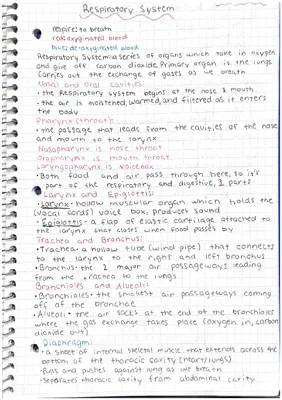 Respiratory System
respire: to breath
red: oxygenated blood
blue: deoxygenated blood
Respiratory System: a series of organs which take in oxygen
and give off carbon dioxide. Primary organ is the lungs.
Carries out the exchange of gases as we breath
Nasal and Oral cavities:
• the Respiratory system begins at the nose & mouth.
• the air is moistened, warmed, and filtered as it enters
the body
Pharynx (throat):
• the passage that leads from the cavities of the nose
and mouth to the larynx
Nasopharynx is nose throat
Oropharynx is mouth throat
Laryngopharynx is voicebox
• Both food and air pass through here, so it's
part of the respiratory and digestive, 3 parts
Larynx and Epiglottis:
• Larynx- hollow muscular organ which holds the
(vocal cords) voice box, produces sound
• Epiglottis- a flap of elastic cartilage attached to
the larynx that closes when food passes by
Trachea and Bronchus:
• Trachea- a hollow tube (wind pipe) that connects
to the larynx to the right and left bronchus
• Bronchus- the 2 major air passageways leading
from the trachea to the lungs
Bronchioles and Alveoli:
• Bronchioles- the smallest air passageways coming
off of the bronchae
• Alveoli- the air sacks at the end of the bronchioles
where the gas exchange takes place (oxygen in, carbon
dioxide out)
Diaphragm:
• a sheet of internal skeletal muscle that extends across the
bottom of the thoracic cavity (heart/lungs)
• Pulls and pushes against lung as we breath
• separates thoracic cavity from abdominal cavity